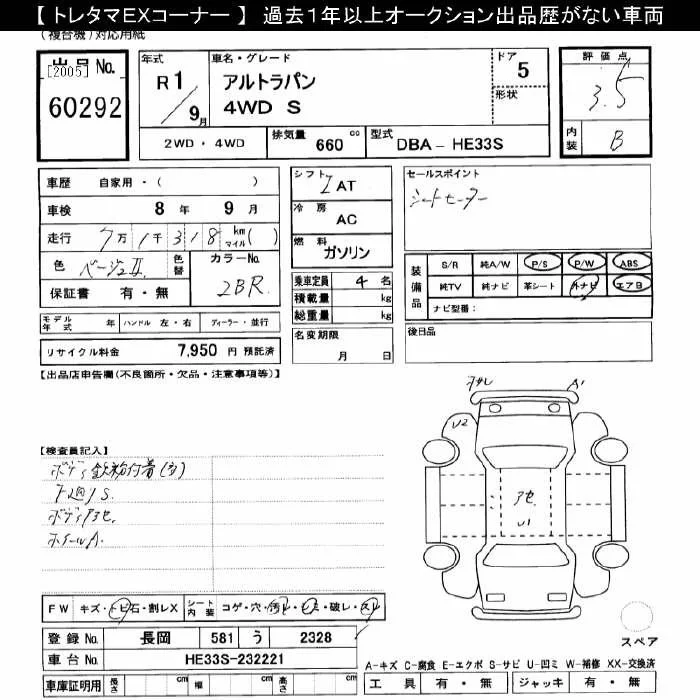 【 トレタマEXコーナー 】 過去１年以上オークション出品歴がない車両
(複合機)対応用紙
出品No.
[2005]
60292
年式
R1/9月
車名・グレード
アルトラパン
4WD S
ドア
5
形状
評価点
3.5
内装
B
2WD ・ 4WD
排気量 660 cc
型式 DBA－HE33S
車歴 自家用・( )
車検 8年 9月
走行 7万1千318 km マイル( )
色 ベージュII
色替
カラーNo. 2BR
保証書 有・無
シフト IAT
冷房 AC
燃料 ガソリン
乗車定員 4名
積載量 kg
総重量 kg
セールスポイント
シートヒーター
装備品
S/R 純A/W P/S P/W ABS
純TV 純ナビ 革シート 外ナビ エアB
ナビ型番：
モデル年式 年 ハンドル 左・右 ディーラー・並行
リサイクル料金 7,950 円 預託済
名変期限 月 日
後日品
【出品店申告欄(不良箇所・欠品・注意事項等)】
A1
U2
U1
【検査員記入】
ボディ鉄粉付着(有)
下廻りS.
ホイールA.
FW キズ・トビ石・割レX
シート内装 コゲ・穴・汚レ・シミ・破レ・スレ
登録No. 長岡 581 う 2328
車台No. HE33S-232221
車庫証明用 長さ cm 幅 cm 高さ cm
スペア
A-キズ C-腐食 E-エクボ S-サビ U-凹ミ W-補修 XX-交換済
工具 有・無 ジャッキ 有・無